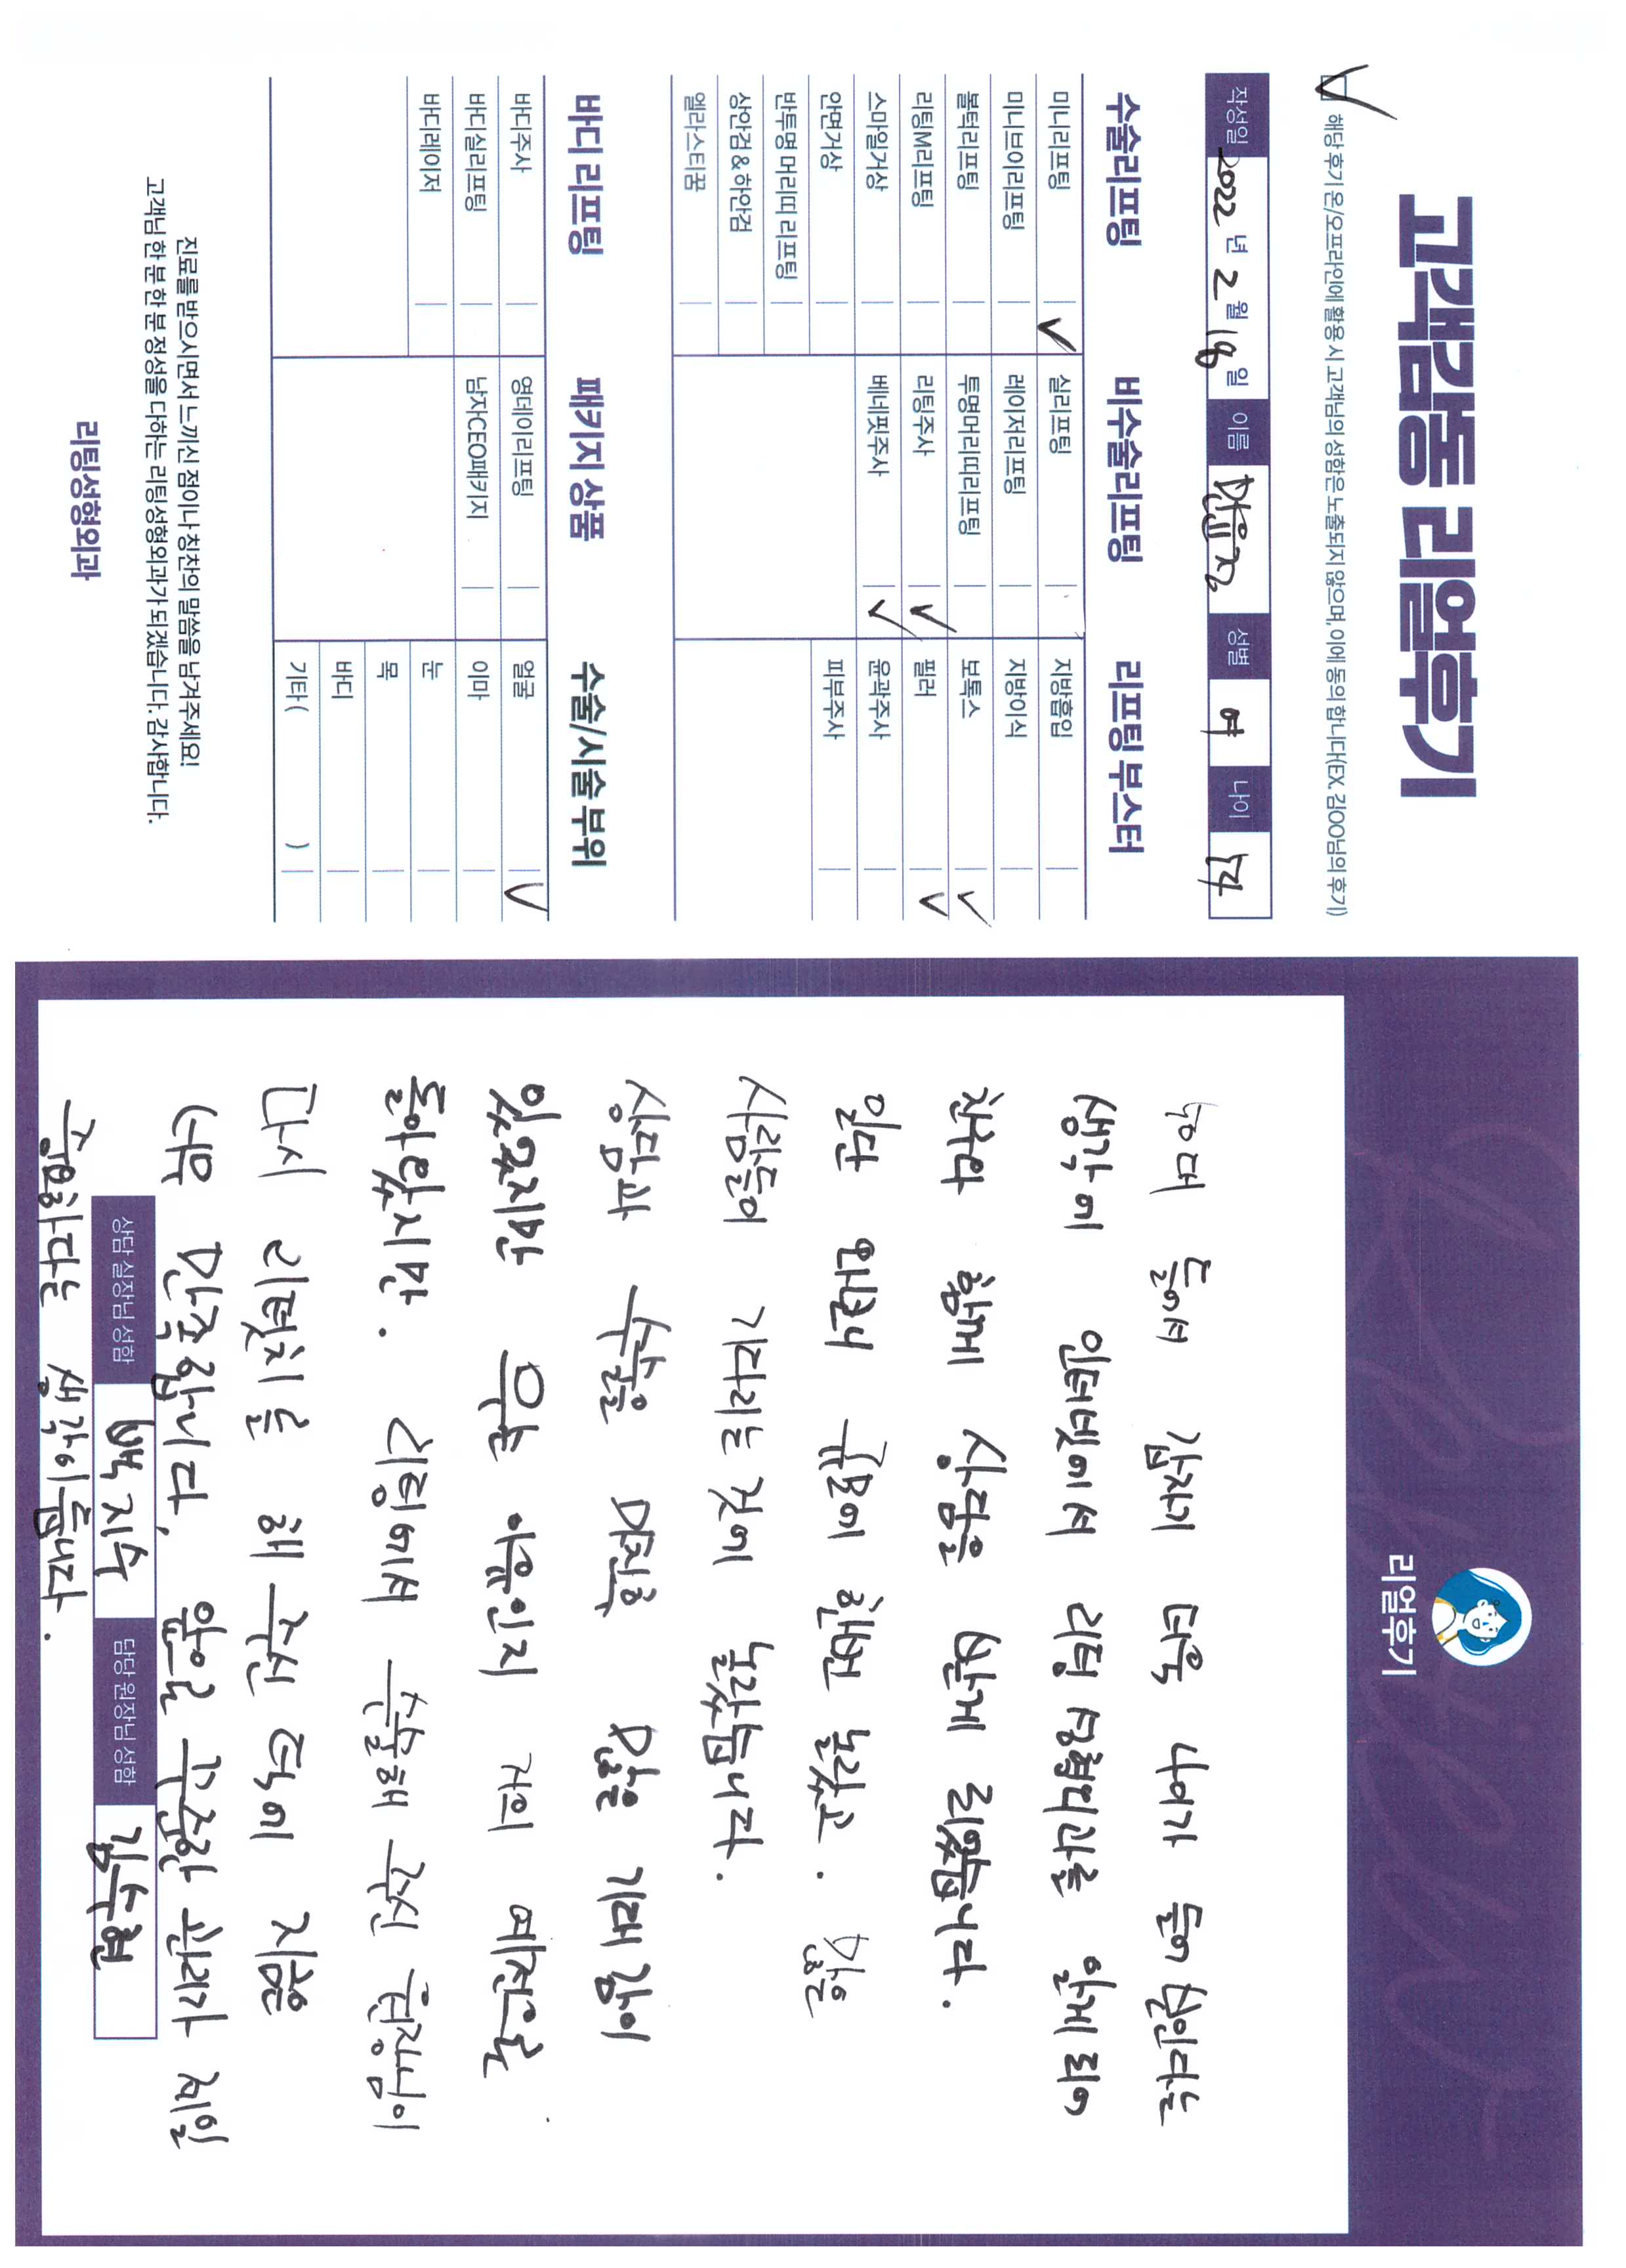 고객감동 리얼후기
해당 후기 온/오프라인에 활용 시 고객님의 성함은 노출되지 않으며, 이에 동의 합니다(EX. 김OO님의 후기)
작성일 2022 년 2 월 18 일 이름 성별 여 나이
수술리프팅 비수술리프팅 리프팅 부스터
미니리프팅 실리프팅 지방흡입
미니브이리프팅 레이저리프팅 지방이식
볼턱리프팅 투명머리띠리프팅 보톡스
리팅M리프팅 리팅주사 필러
스마일거상 베네핏주사 윤곽주사
안면거상 피부주사
반투명 머리띠 리프팅
상안검 & 하안검
엘라스티꿈
바디 리프팅 패키지 상품 수술/시술 부위
바디주사 영데이리프팅 얼굴
바디실리프팅 남자CEO패키지 이마
바디레이저 눈
목
바디
기타 ( )
진료를 받으시면서 느끼신 점이나 칭찬의 말씀을 남겨주세요!
고객님 한 분 한 분 정성을 다하는 리팅성형외과가 되겠습니다. 감사합니다.
리팅성형외과
리얼후기
40대 들어서 갑자기 더욱 나이가 들어 보인다는
생각에 인터넷에서 리팅 성형외과를 알게 되어
친구와 함께 상담을 받게 되었습니다.
일단 와보니 규모에 한번 놀랐고. 많은
사람들이 기다리는 것에 놀랐습니다.
상담과 수술을 마친후 많은 기대감이
있었지만 무슨 이유인지 거의 예전으로
돌아왔지만. 리팅에서 수술해 주신 원장님이
다시 리터치를 해 주신 덕에 지금은
너무 만족합니다. 앞으로 꾸준한 관리가 제일
중요하다는 생각이듭니다.
상담 실장님 성함 백지수 담당 원장님 성함 김수현